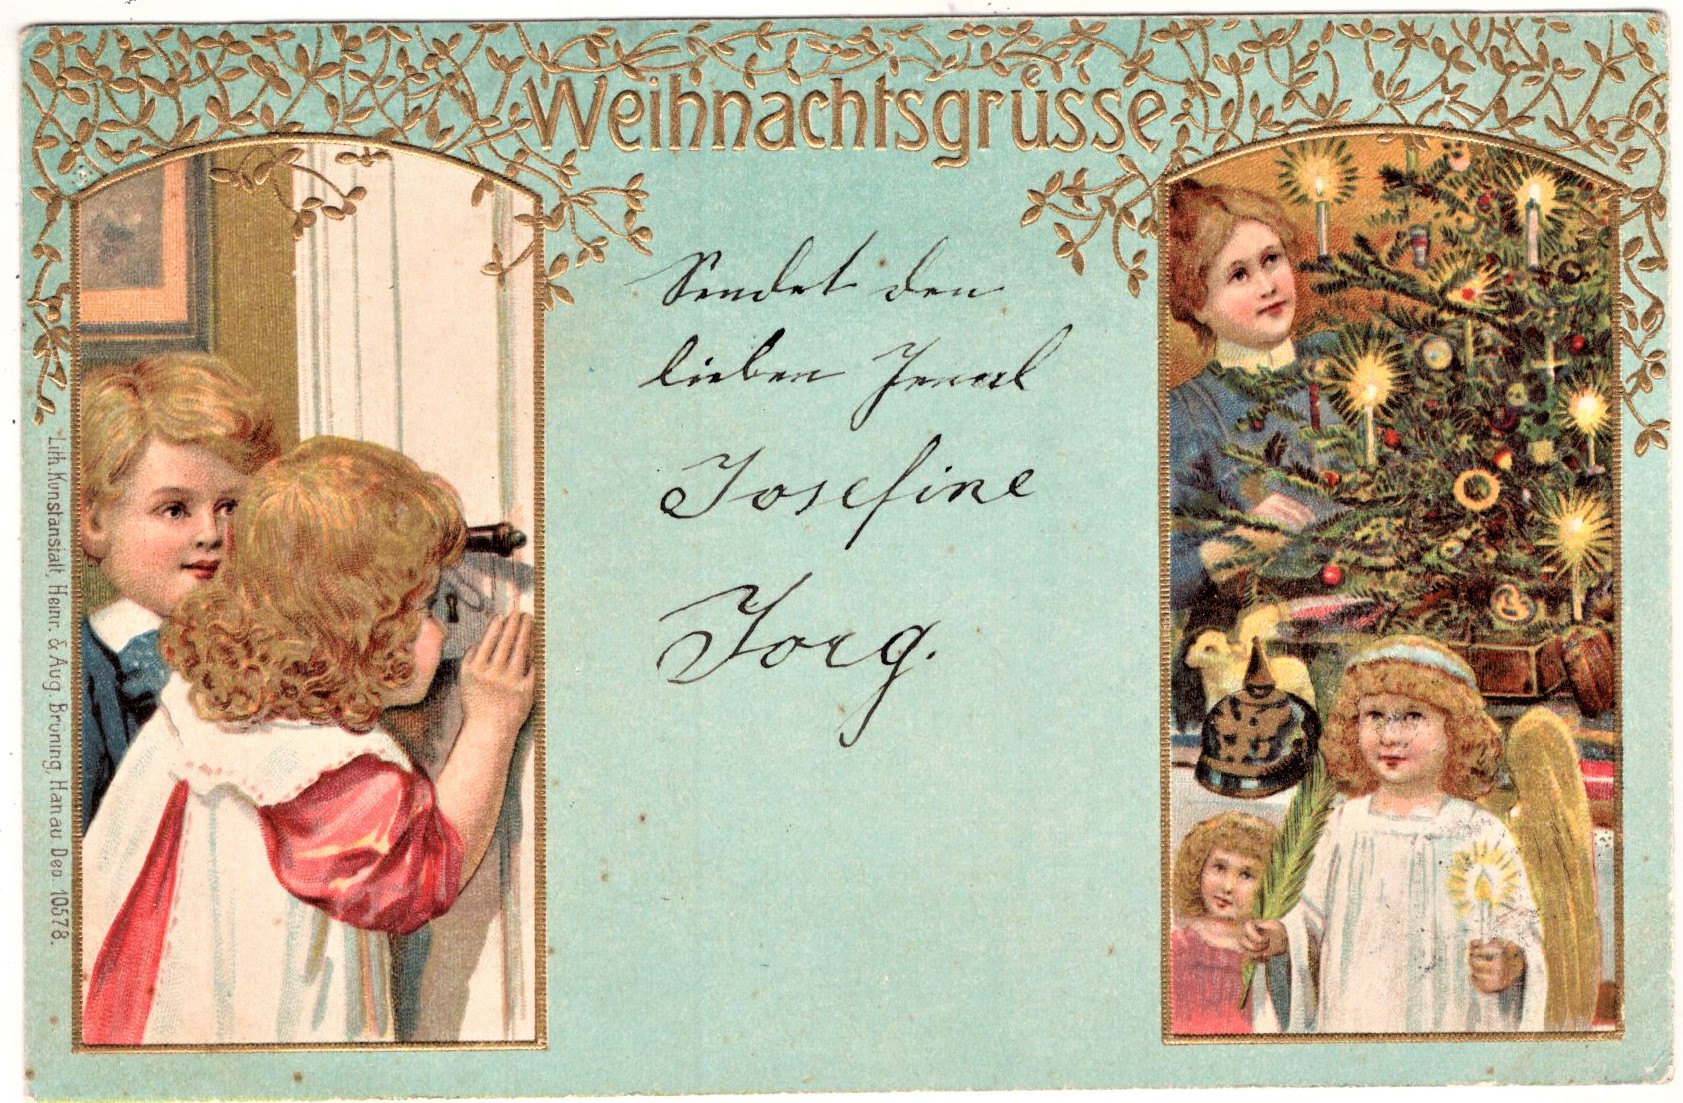 Weihnachtsgrüsse
Sendet den
lieben
Josefine
Joeg.
Lith. Kunstanstalt, Heinr. & Aug. Brüning, Hanau Dep. 10578.